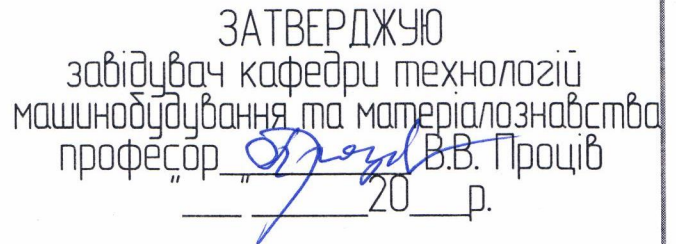 ЗАТВЕРДЖУЮ
завідувач кафедри технологій
машинобудування та матеріалознавства
професор____________В.В. Проців
___"___"________20___р.